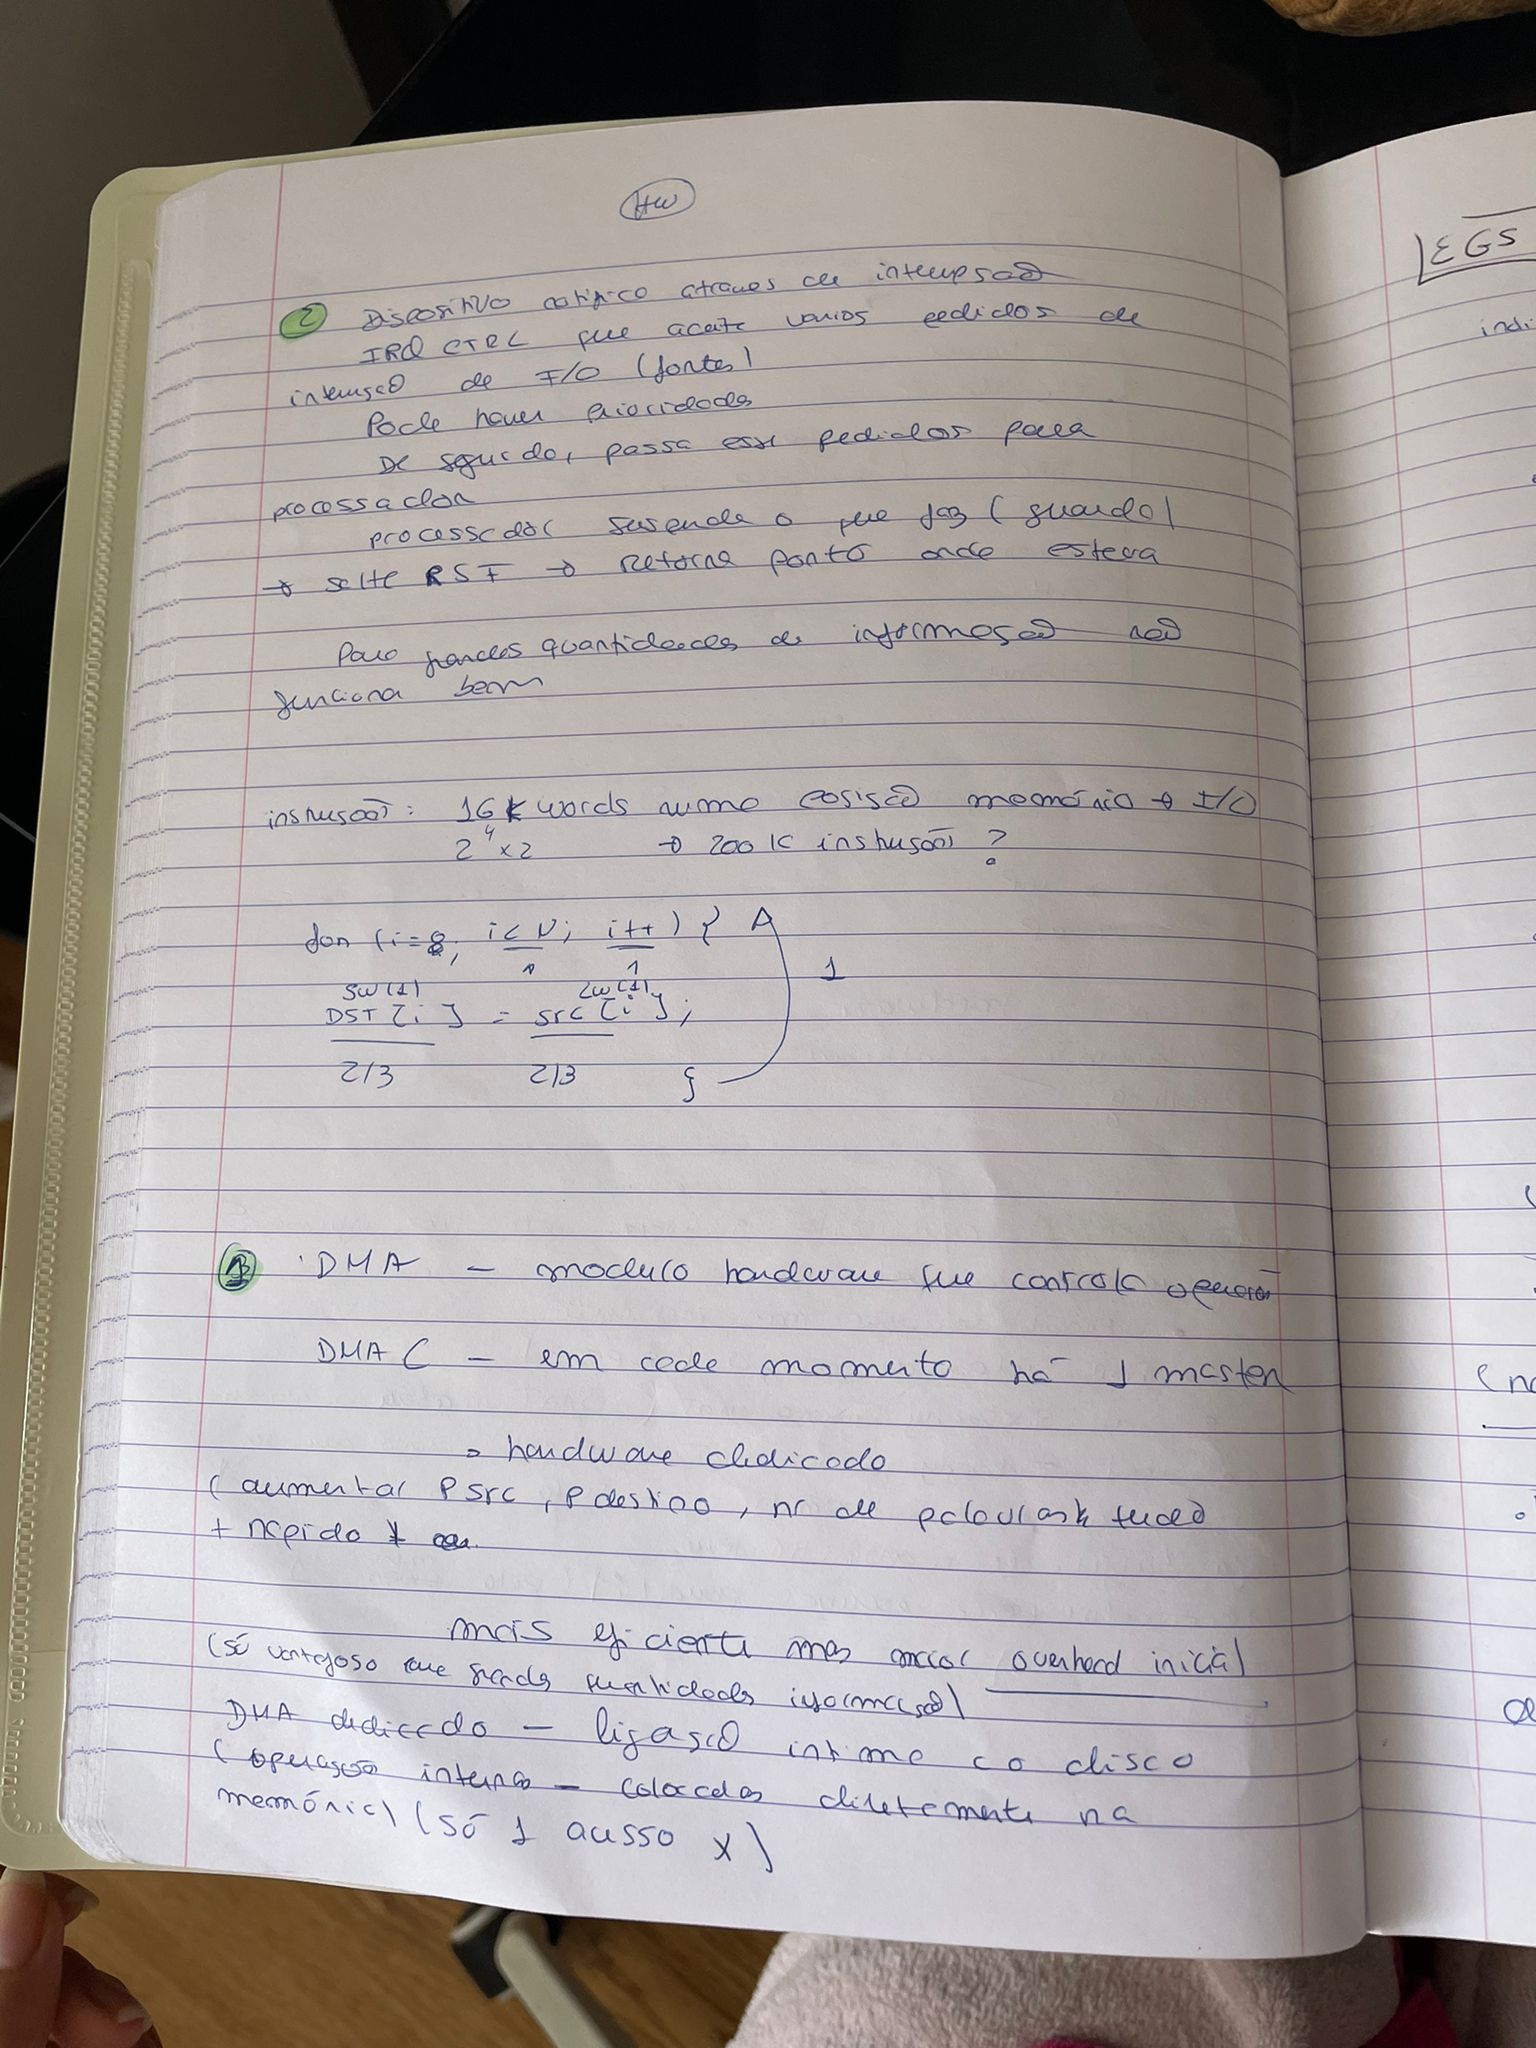 HW
2 Dispositivo notifica atraves de interrupsão
IRQ CTRL que aceita varios pedidos de
interrução de I/O (fontes)
Pode haver prioridades
De seguida, passa esse pedidos para
processador
processador suspende o que faz (guarda)
→ salta RSI → retorna ponto onde estava
Para grandes quantidades de informação não
funciona bem
instruções: 16K words numa posição memória → I/O
2⁴ x 2 → 200K instruções ?
for (i=0; i< N; i++) {
1 1 1
SW(1) LW(1)
DST [i] = src [i];
2/3 2/3 }
3 DMA - modulo hardware que controla operação
DMA C - em cada momento há 1 master
→ hardware dedicado
(aumentar P src, P destino, nr de palavras tudo
+ rapido
mais eficiente mas maior overhead inicial
(só vantajoso para grandes quantidades informação)
DMA dedicado - ligação intima c o disco
(operação interna - colocadas diretamente na
memória) (só 1 acesso x)
LEGS
indi
(no